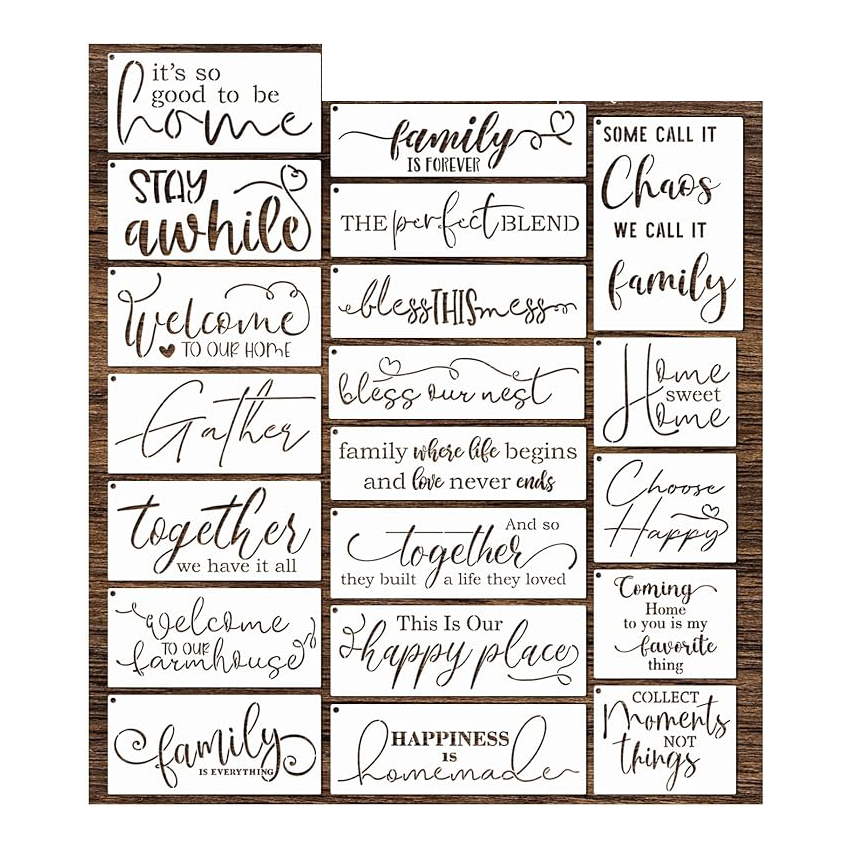 it's so
good to be
home
STAY
awhile
Welcome
TO OUR HOME
Gather
together
we have it all
welcome
TO OUR
farmhouse
family
IS EVERYTHING
family
IS FOREVER
THE perfect BLEND
bless THIS mess
bless our nest
family where life begins
and love never ends
And so
together
they built a life they loved
This Is Our
happy place
HAPPINESS
IS
homemade
SOME CALL IT
Chaos
WE CALL IT
family
Home
sweet
Home
Choose
Happy
Coming
Home
to you is my
favorite
thing
COLLECT
Moments
NOT
things